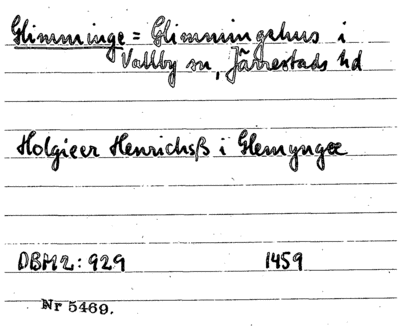 Glimminge = Glimmingehus i
Vallby sn, Järrestads hd
Holgieer Henrichsß i Glemyngee
DBM2: 929 1459
Nr 5469.